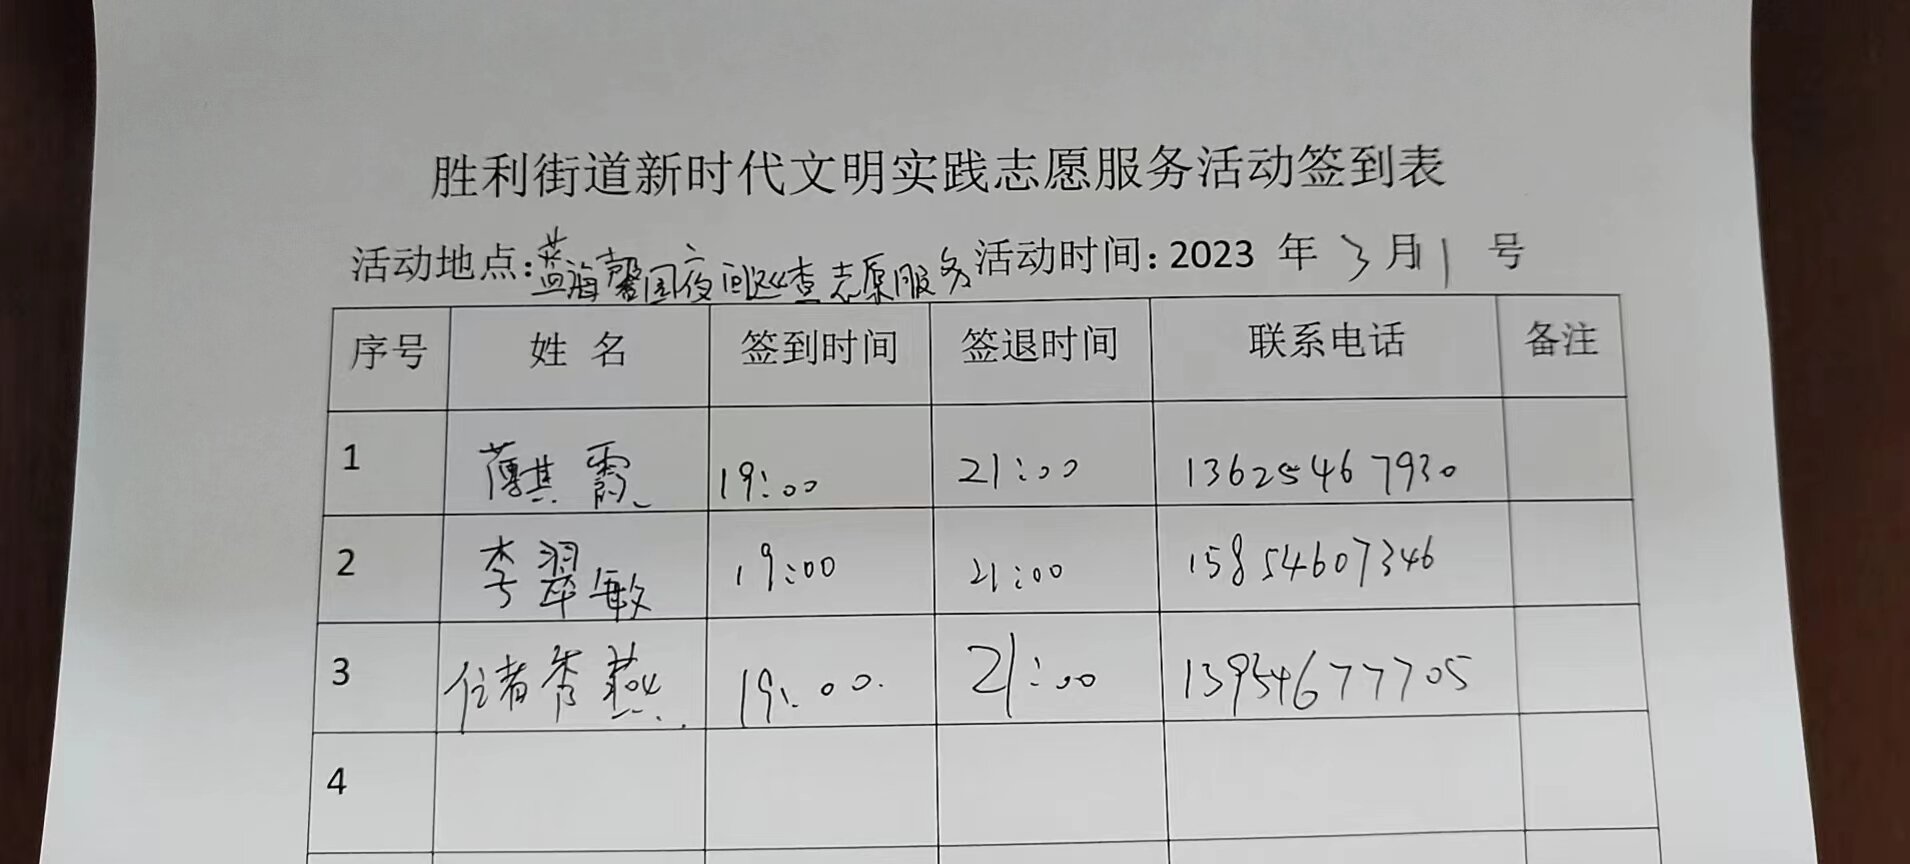 胜利街道新时代文明实践志愿服务活动签到表
活动地点:蓝海馨园夜间巡查志愿服务 活动时间:2023 年 3 月 1 号
序号 姓 名 签到时间 签退时间 联系电话 备注
1 薄其霞 19:00 21:00 13625467930
2 李翠敏 19:00 21:00 15854607346
3 秀燕 19:00 21:00 13954677705
4